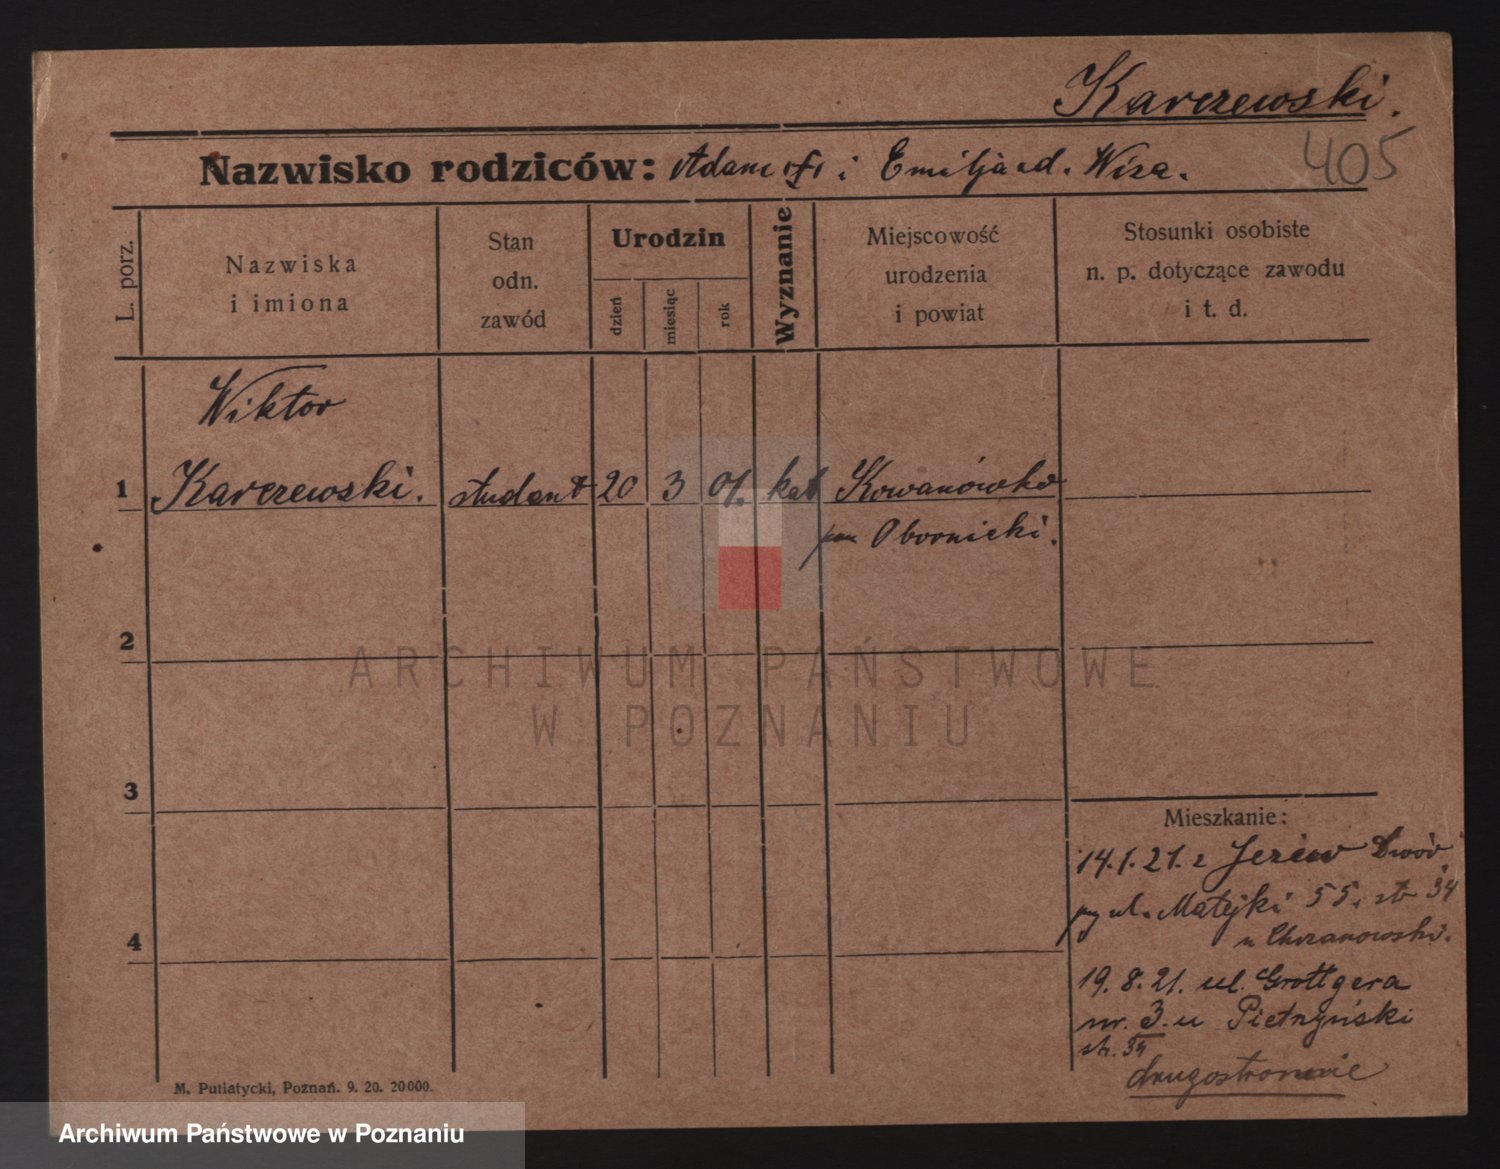 Karczewski.
405
Nazwisko rodziców: Adam i Emilja ad. Wiza.
L. porz.
Nazwiska
i imiona
Stan
odn.
zawód
Urodzin
dzień
miesiąc
rok
Wyznanie
Miejscowość
urodzenia
i powiat
Stosunki osobiste
n. p. dotyczące zawodu
i t. d.
Wiktor
1 Karczewski. student 20 3 01. kat Kowanówko
pow Obornicki.
2
3
4
ARCHIWUM PAŃSTWOWE
W POZNANIU
Mieszkanie:
14.1.21. z Jeżów Dwór
ul. Matejki 55. str 34
u Chrzanowski.
19.8.21. ul. Grottgera
nr. 3. u Pietrzyński
str. 34
drugostronnie
M. Putiatycki, Poznań. 9. 20. 20000.
Archiwum Państwowe w Poznaniu